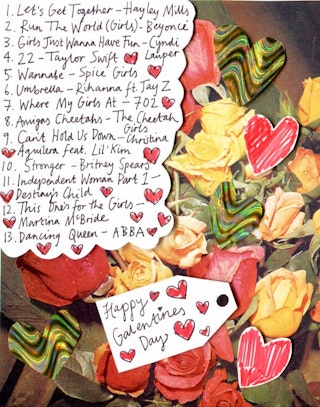 1. Let's Get Together - Hayley Mills
2. Run The World (Girls) - Beyoncé
3. Girls Just Wanna Have Fun - Cyndi
Lauper
4. 22 - Taylor Swift
5. Wannabe - Spice Girls
6. Umbrella - Rihanna ft. Jay Z
7. Where My Girls At - 702
8. Amigas Cheetahs - The Cheetah
Girls
9. Cant Hold Us Down - Christina
Aguilera feat. Lil' Kim
10. Stronger - Britney Spears
11. Independent Woman Part 1 -
Destiny's Child
12. This One's for the Girls -
Martina McBride
13. Dancing Queen - ABBA
Happy
Galentines
Day